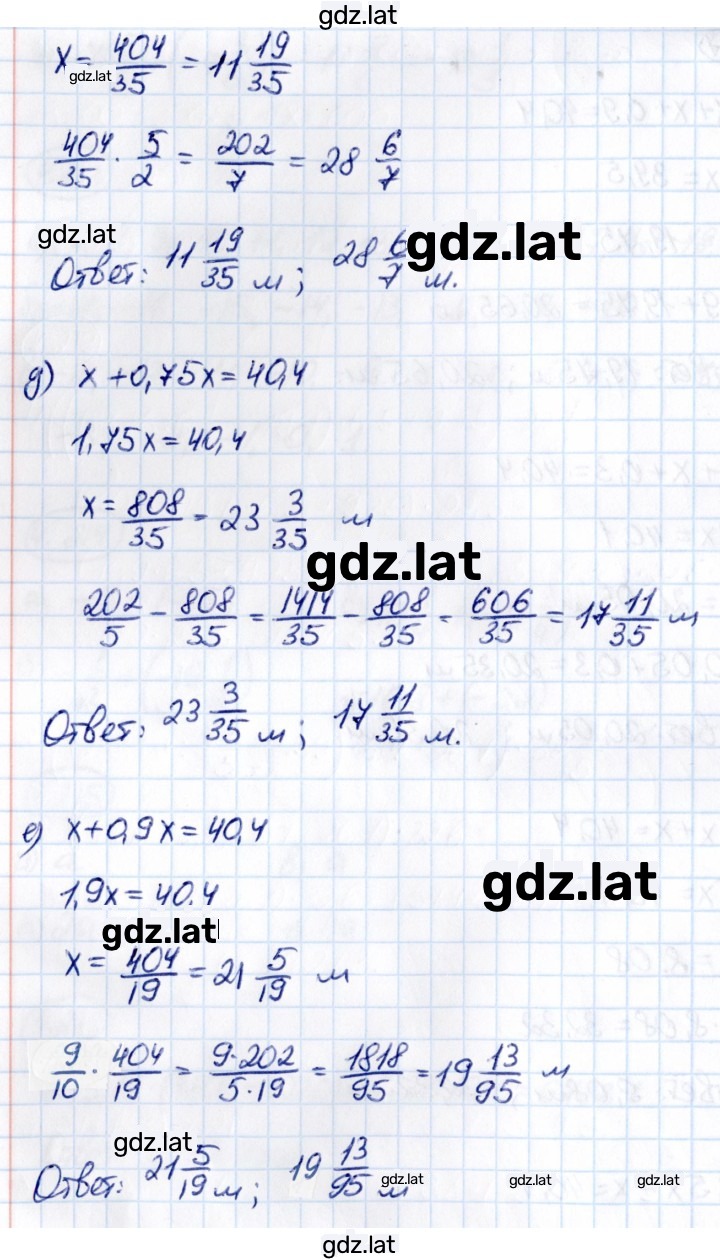 gdz.lat
x = 404/35 = 11 19/35
gdz.lat
404/35 · 5/2 = 202/7 = 28 6/7
gdz.lat
gdz.lat
Ответ: 11 19/35 м; 28 6/7 м.
д) x + 0,75x = 40,4
1,75x = 40,4
x = 808/35 = 23 3/35 м
gdz.lat
202/5 - 808/35 = 1414/35 - 808/35 = 606/35 = 17 11/35 м
Ответ: 23 3/35 м; 17 11/35 м.
е) x + 0,9x = 40,4
1,9x = 40.4
gdz.lat
gdz.lat
x = 404/19 = 21 5/19 м
9/10 · 404/19 = 9·202/5·19 = 1818/95 = 19 13/95 м
gdz.lat
Ответ: 21 5/19 м; 19 13/95 м
gdz.lat gdz.lat gdz.lat
gdz.lat